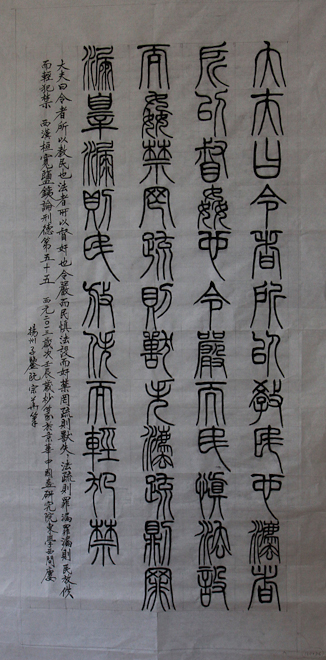 大夫曰令者所以教民也灋者
所以督姦也令嚴而民慎法設
而姦禁罔疏則獸失灋疏則罪
漏辠漏則民放佚而輕犯禁
大夫曰令者所以教民也法者所以督奸也令嚴而民慎法設而奸禁罔疏則獸失法疏則罪漏罪漏則民放佚
而輕犯禁 西漢桓寬鹽鐵論刑德第五十五 西元二〇一二歲次壬辰歲杪篆於京華中國畫研究院東學西問廬
揚州子鑒阮宗